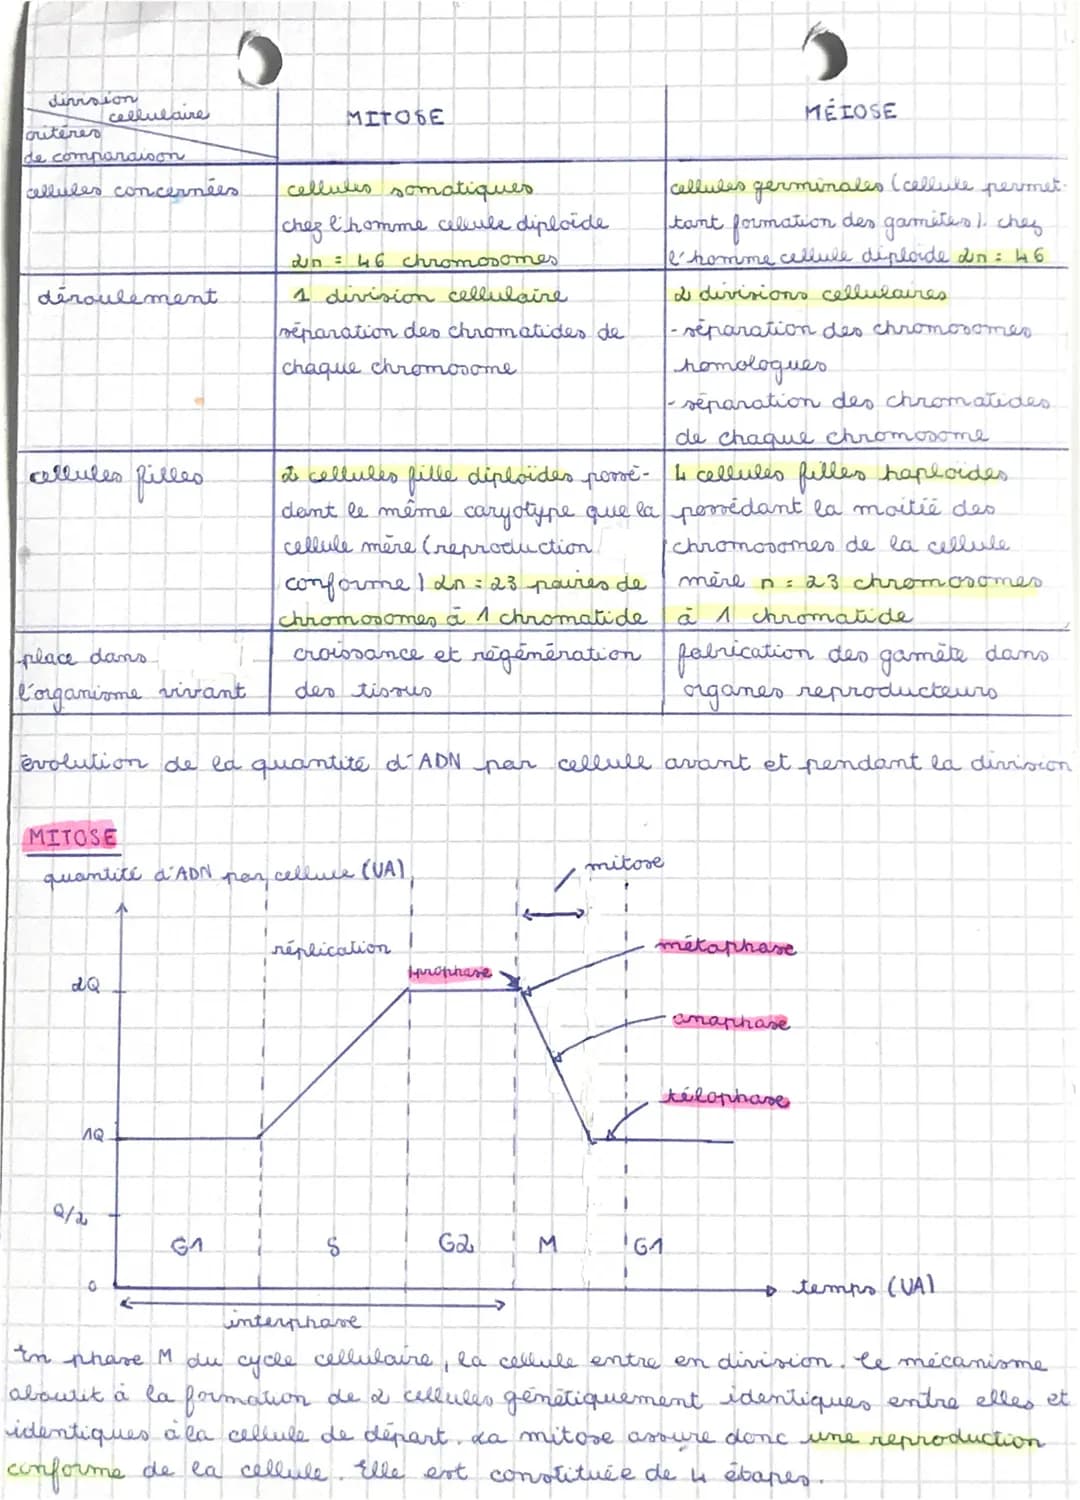 division
cellulaire
critères
de comparaison
MITOSE
MÉIOSE
cellules concernées
cellules somatiques
chez l'homme cellule diploïde
2n = 46 chromosomes
cellules germinales (cellule permet-
tant formation des gamètes). chez
l'homme cellule diploïde 2n = 46
déroulement
1 division cellulaire
séparation des chromatides de
chaque chromosome
2 divisions cellulaires
- séparation des chromosomes
homologues
- séparation des chromatides
de chaque chromosome
cellules filles
2 cellules fille diploïdes possé-
dant le même caryotype que la
cellule mère (reproduction
conforme) 2n = 23 paires de
chromosomes à 1 chromatide
4 cellules filles haploïdes
possédant la moitié des
chromosomes de la cellule
mère n = 23 chromosomes
à 1 chromatide
place dans
l'organisme vivant
croissance et régénération
des tissus
fabrication des gamète dans
organes reproducteurs
évolution de la quantité d'ADN par cellule avant et pendant la division
MITOSE
quantité d'ADN par cellule (UA)
mitose
réplication
prophase
métaphase
2Q
anaphase
télophase
1Q
Q/2
G1 S G2 M G1
0
temps (UA)
interphase
En phase M du cycle cellulaire, la cellule entre en division. Le mécanisme
aboutit à la formation de 2 cellules génétiquement identiques entre elles et
identiques à la cellule de départ. La mitose assure donc une reproduction
conforme de la cellule. Elle est constituée de 4 étapes.